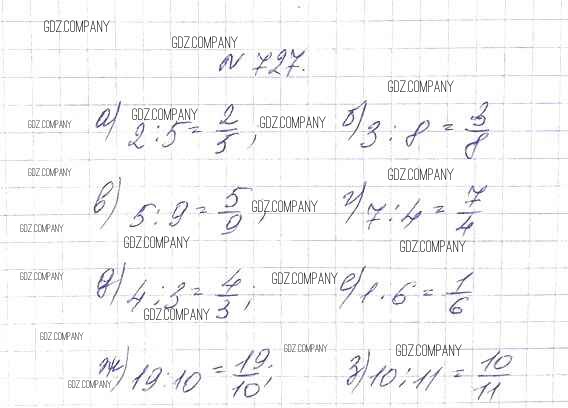 GDZ.COMPANY
GDZ.COMPANY
№ 727.
GDZ.COMPANY
GDZ.COMPANY
а) 2 : 5 = 2/5 ; GDZ.COMPANY б) 3 : 8 = 3/8
GDZ.COMPANY
GDZ.COMPANY
GDZ.COMPANY
в) 5 : 9 = 5/9 ; GDZ.COMPANY г) 7 : 4 = 7/4
GDZ.COMPANY
GDZ.COMPANY
GDZ.COMPANY
GDZ.COMPANY
д) 4 : 3 = 4/3 ; GDZ.COMPANY е) 1 . 6 = 1/6
GDZ.COMPANY
GDZ.COMPANY
GDZ.COMPANY
GDZ.COMPANY
GDZ.COMPANY
ж) 19 : 10 = 19/10 ; з) 10 : 11 = 10/11